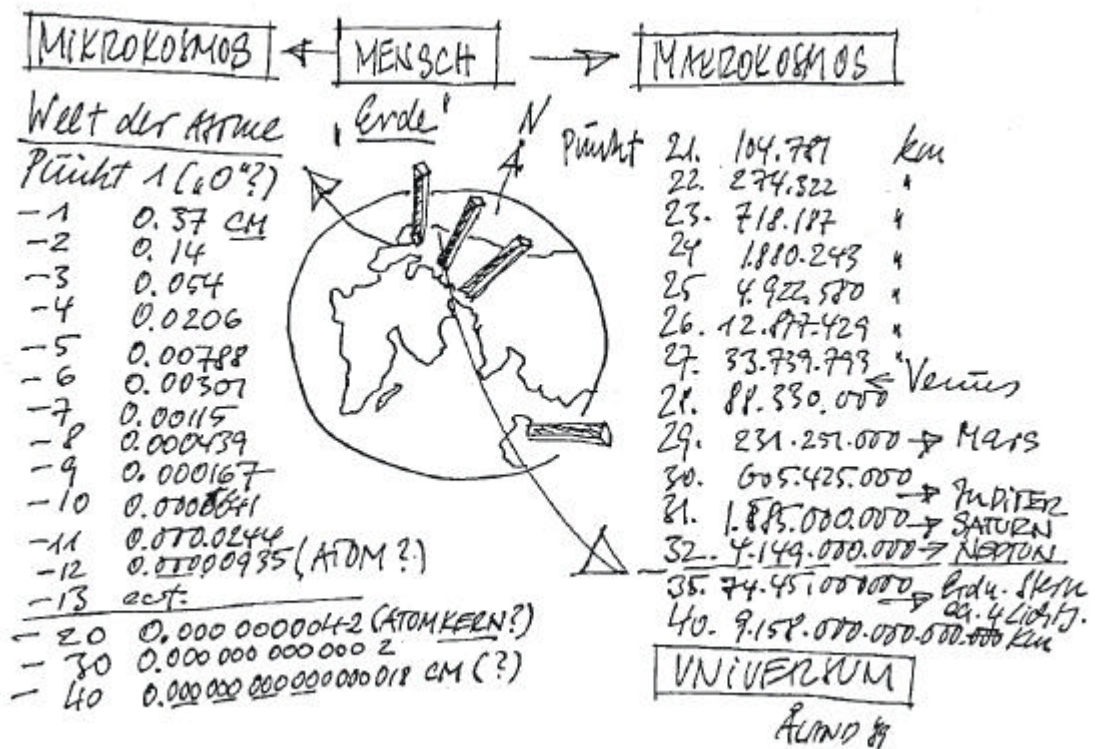 MIKROKOSMOS
MENSCH
MAKROKOSMOS
Welt der Atome
Punkt 1 („0"?)
-1 0.37 CM
-2 0.14
-3 0.054
-4 0.0206
-5 0.00788
-6 0.00301
-7 0.00115
-8 0.000439
-9 0.000167
-10
-11 0.000.0244
-12 0.00000935 (ATOM?)
-13 ect.
-20 0.000 00000042 (ATOMKERN?)
-30 0.000 000 000 000 2
-40 0.000 000 000 000 000 018 CM (?)
„Erde"
N
Punkt 21. 104.781 km
22. 274.322 "
23. 718.187 "
24 1.880.243 "
25 4.922.580 "
26. 12.877.429 "
27. 33.739.793 "
← Venus
28. 88.330.000
29. 231.251.000 → Mars
30. 605.425.000
→ JUPITER
31. 1.585.000.000 → SATURN
32. 4.149.000.000 → NEPTUN
35. 74.451000000 → Erdn. Stern
ca. 4 Lichtj.
40. 9.158.000.000.000.000 km
UNIVERSUM
ÅLAND 89